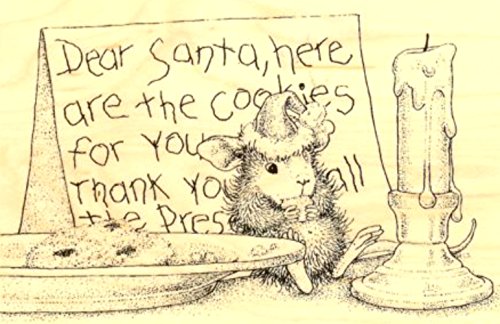 Dear Santa, here
are the cookies
for you
Thank yo all
the Pres